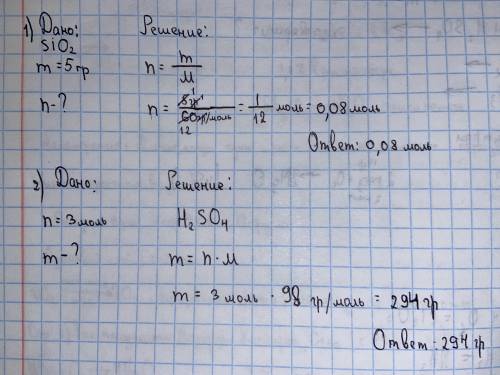 1) Дано:
SiO₂
m = 5 гр
n - ?
Решение:
n = m/M
n = 5 гр / 60 гр/моль = 1/12 моль = 0,08 моль
1
12
Ответ: 0,08 моль
2) Дано:
n = 3 моль
m - ?
Решение:
H₂SO₄
m = n · M
m = 3 моль · 98 гр/моль = 294 гр
Ответ: 294 гр